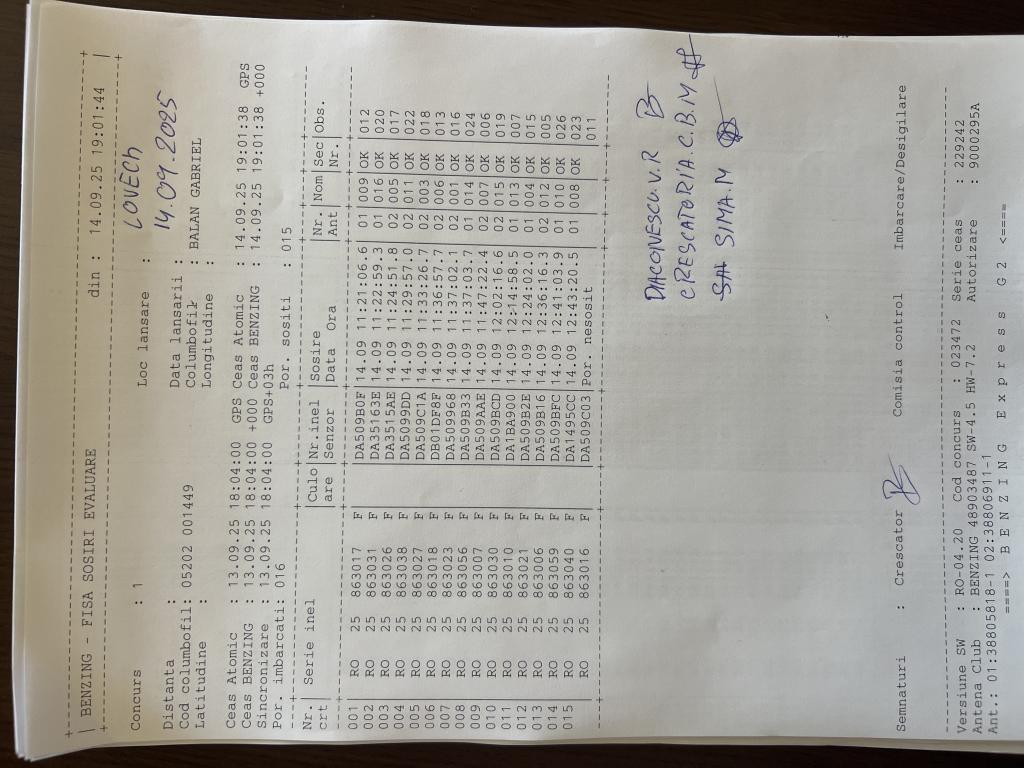 | BENZING - FISA SOSIRI EVALUARE din : 14.09.25 19:01:44 |
Concurs : 1 Loc lansare : LOVECH
Distanta : Data lansarii : 14.09.2025
Cod columbofil: 05202 001449 Columbofil : BALAN GABRIEL
Latitudine : Longitudine :
Ceas Atomic : 13.09.25 18:04:00 GPS Ceas Atomic : 14.09.25 19:01:38 GPS
Ceas BENZING : 13.09.25 18:04:00 +000 Ceas BENZING : 14.09.25 19:01:38 +000
Sincronizare : 13.09.25 18:04:00 GPS+03h
Por. imbarcati: 016 Por. sositi : 015
Nr. | Serie inel |Culo|Nr.inel |Sosire |Nr. |Nom|Sec|Obs.
crt | |are |Senzor |Data Ora |Ant | |Nr.|
001 | RO 25 863017 F | |DA509B0F|14.09 11:21:06.6| 01 |009|OK |012
002 | RO 25 863031 F | |DA35163E|14.09 11:22:59.3| 01 |016|OK |020
003 | RO 25 863026 F | |DA3515AE|14.09 11:24:51.8| 02 |005|OK |017
004 | RO 25 863038 F | |DA5099DD|14.09 11:29:57.0| 02 |011|OK |022
005 | RO 25 863027 F | |DA509C1A|14.09 11:33:26.7| 02 |003|OK |018
006 | RO 25 863018 F | |DB01DF8F|14.09 11:36:57.7| 02 |006|OK |013
007 | RO 25 863023 F | |DA509968|14.09 11:37:02.1| 02 |001|OK |016
008 | RO 25 863056 F | |DA509B33|14.09 11:37:03.7| 01 |014|OK |024
009 | RO 25 863007 F | |DA509AAE|14.09 11:47:22.4| 02 |007|OK |006
010 | RO 25 863030 F | |DA509BCD|14.09 12:02:16.6| 02 |015|OK |019
011 | RO 25 863010 F | |DA1BA900|14.09 12:14:58.5| 01 |013|OK |007
012 | RO 25 863021 F | |DA509B2E|14.09 12:24:02.0| 01 |004|OK |015
013 | RO 25 863006 F | |DA509B16|14.09 12:36:16.3| 02 |012|OK |005
014 | RO 25 863059 F | |DA509BFC|14.09 12:41:03.9| 01 |010|OK |026
015 | RO 25 863040 F | |DA1495CC|14.09 12:43:20.5| 01 |008|OK |023
RO 25 863016 F | |DA509C03|Por. nesosit |011
DIACONESCU.V.R
CRESCATORIA.C.B.M
SIMA.M
Semnaturi : Crescator Comisia control Imbarcare/Desigilare
Versiune SW : RO-04.20 Cod concurs : 023472 Serie ceas : 229242
Antena Club : BENZING 48903487 SW-4.5 HW-7.2 Autorizare : 9000295A
Ant.: 01:38805818-1 02:38806911-1
====> B E N Z I N G E x p r e s s G 2 <====